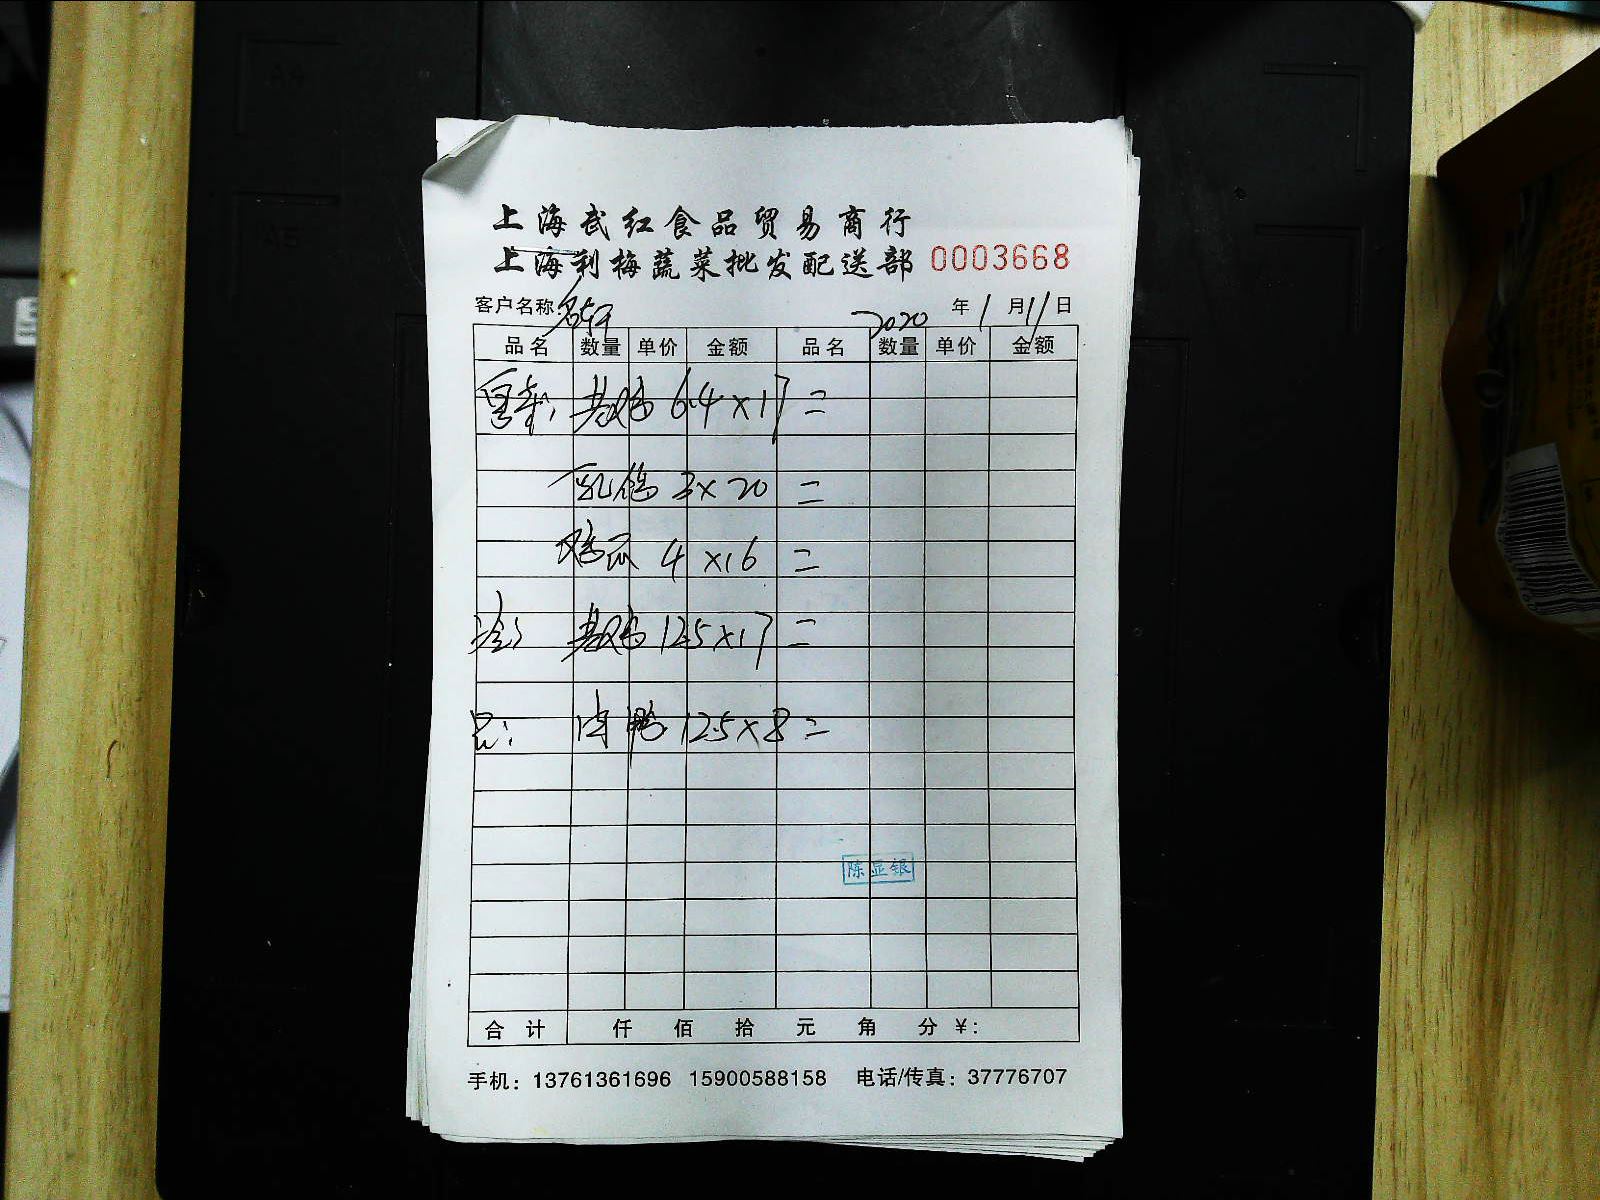 上海武红食品贸易商行
上海利梅蔬菜批发配送部 0003668
客户名称: 名轩 2020 年 1 月 11 日
品名 数量 单价 金额 品名 数量 单价 金额
6.4×17=
乳鸽 3×20=
鸡爪 4×16=
冷: 12.5×17=
肉鸭 12.5×8=
陈显银
合计 仟 佰 拾 元 角 分 ¥:
手机: 13761361696 15900588158 电话/传真: 37776707
A4
A5